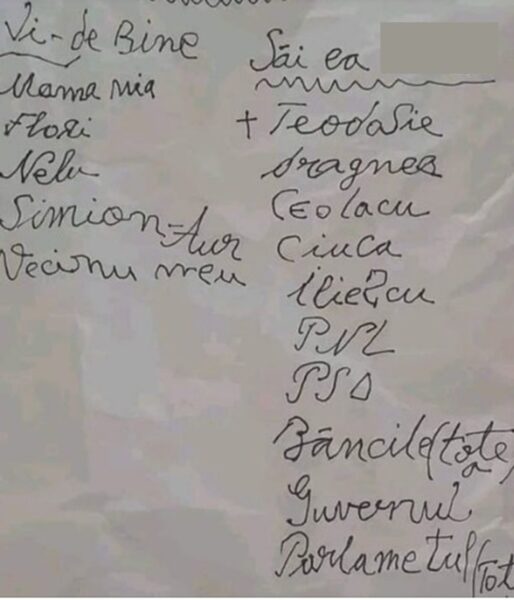 Vi-de Bine
Mama mia
Flori
Nelu
Simion-Aur
Vecinu meu
Săi ea
+ Teodosie
dragnea
Ceolacu
Ciuca
iliescu
PNL
PSD
Băncile (toate)
Guvernul
Parlametul (Tot